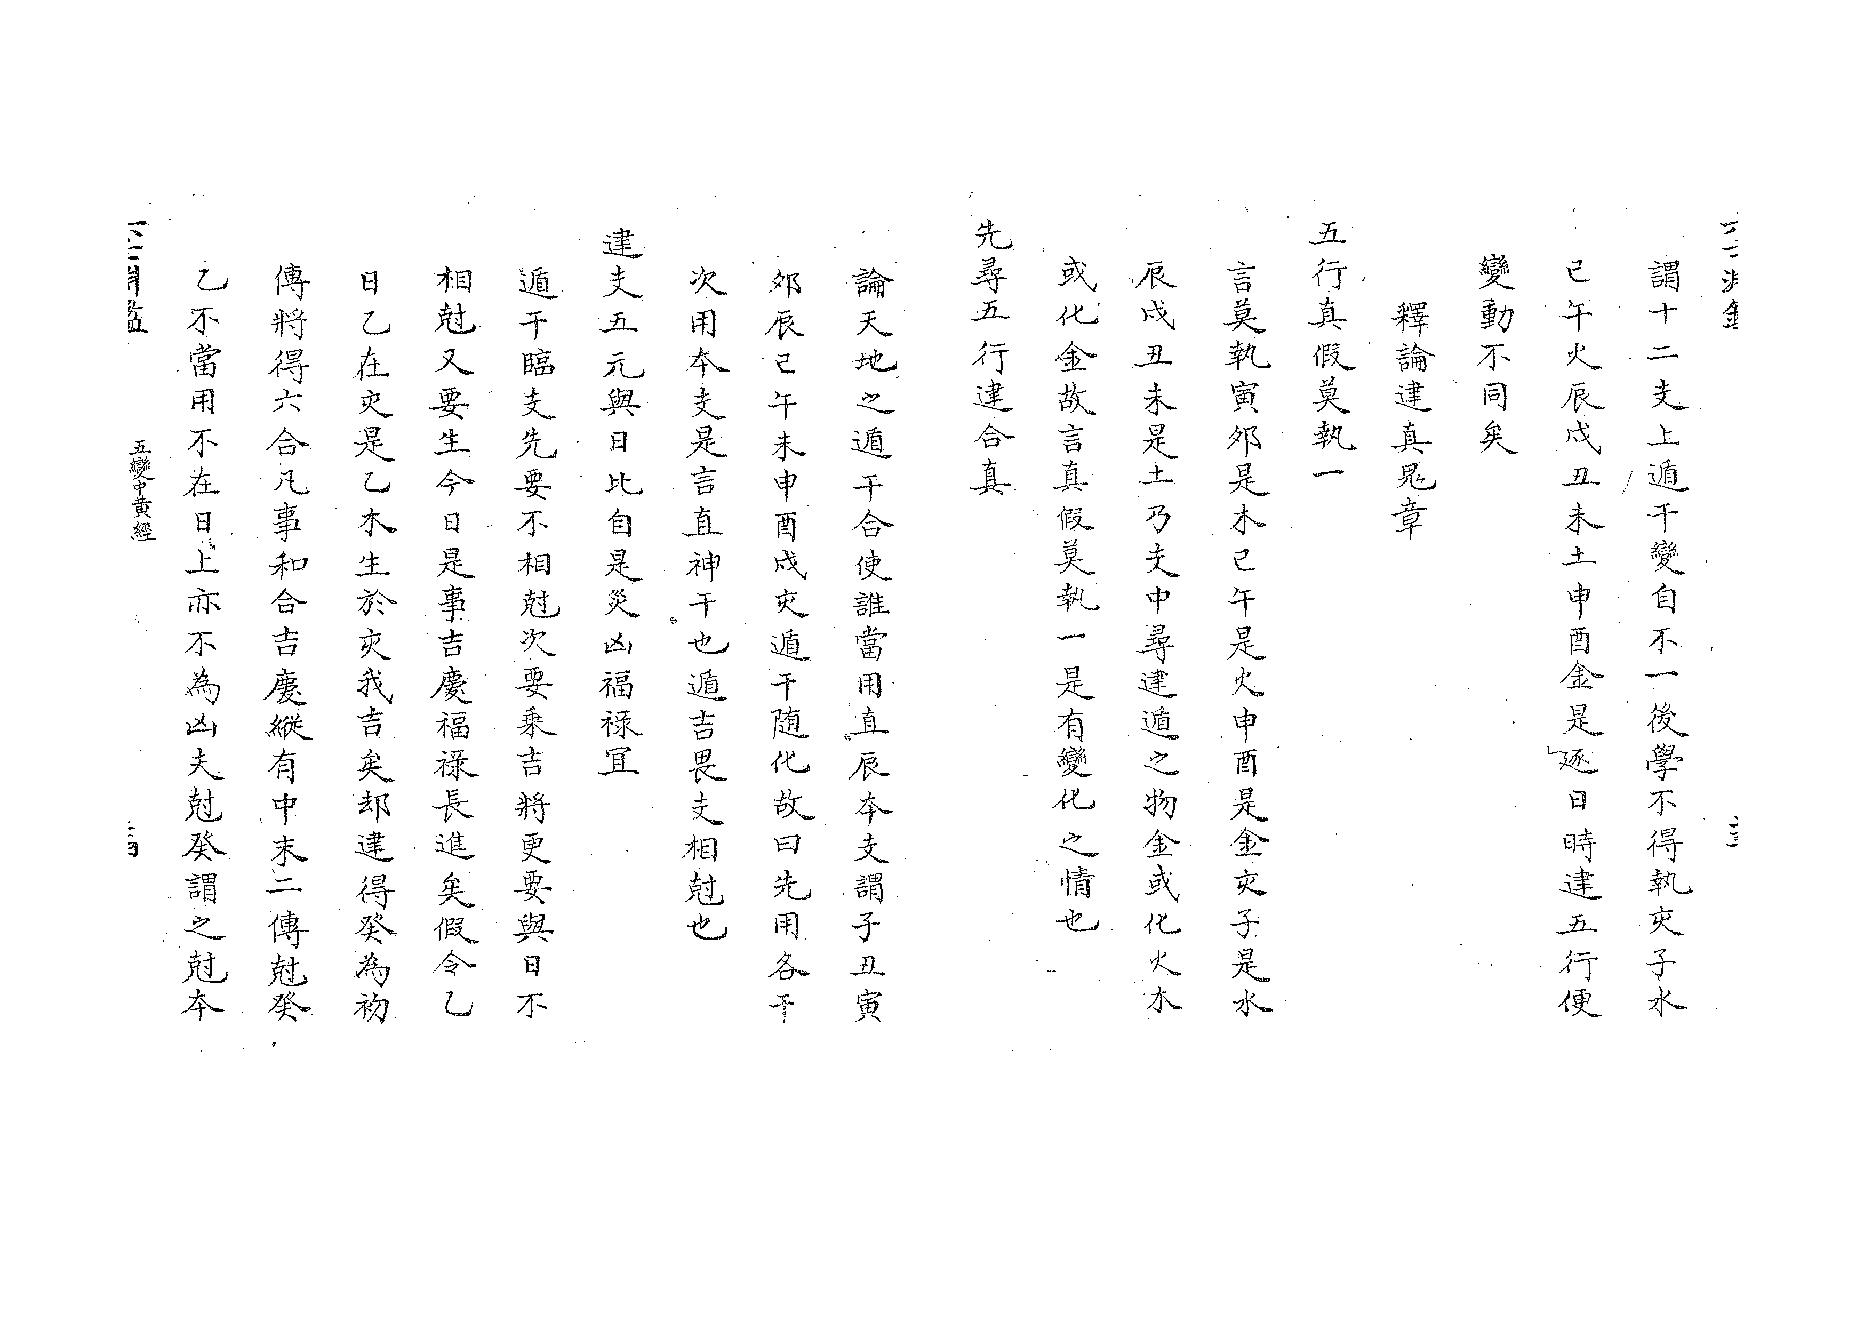 謂十二支上遁干變自不一後學不得執亥子水
巳午火辰戌丑未土申酉金是逐日時建五行便
變動不同矣
釋論建真鬼章
五行真假莫執一
言莫執寅卯是木巳午是火申酉是金亥子是水
辰戌丑未是土乃支中尋建遁之物金或化火木
或化金故言真假莫執一是有變化之情也
先尋五行建合真
論天地之遁干合使誰當用直辰本支謂子丑寅
卯辰巳午未申酉戌亥遁干随化故曰先用各干
次用本支是言直神干也遁吉畏支相尅也
建支五元與日比自是災凶福禄冝
遁干臨支先要不相尅次要乘吉將更要與日不
相尅又要生今日是事吉慶福禄長進矣假令乙
日乙在亥是乙木生於亥我吉矣却建得癸為初
傳將得六合凡事和合吉慶縱有中末二傳尅癸
乙不當用不在日上亦不為凶夫尅癸謂之尅本
五變中黄經